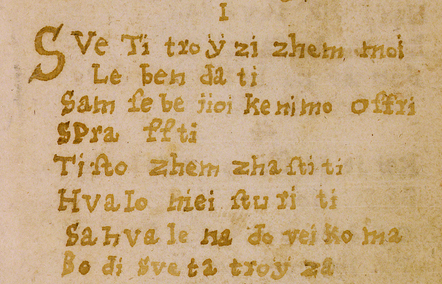 I
SVe Ti troÿ zi zhem moi
Le ben da ti
Sam ſe be jioi ke nimo offri
SPra ffti
Ti ſto zhem zha ſti ti
Hvalo niei ſtu ri ti
Sa hva le na do vei ko ma
Bo di sve ta troÿ za